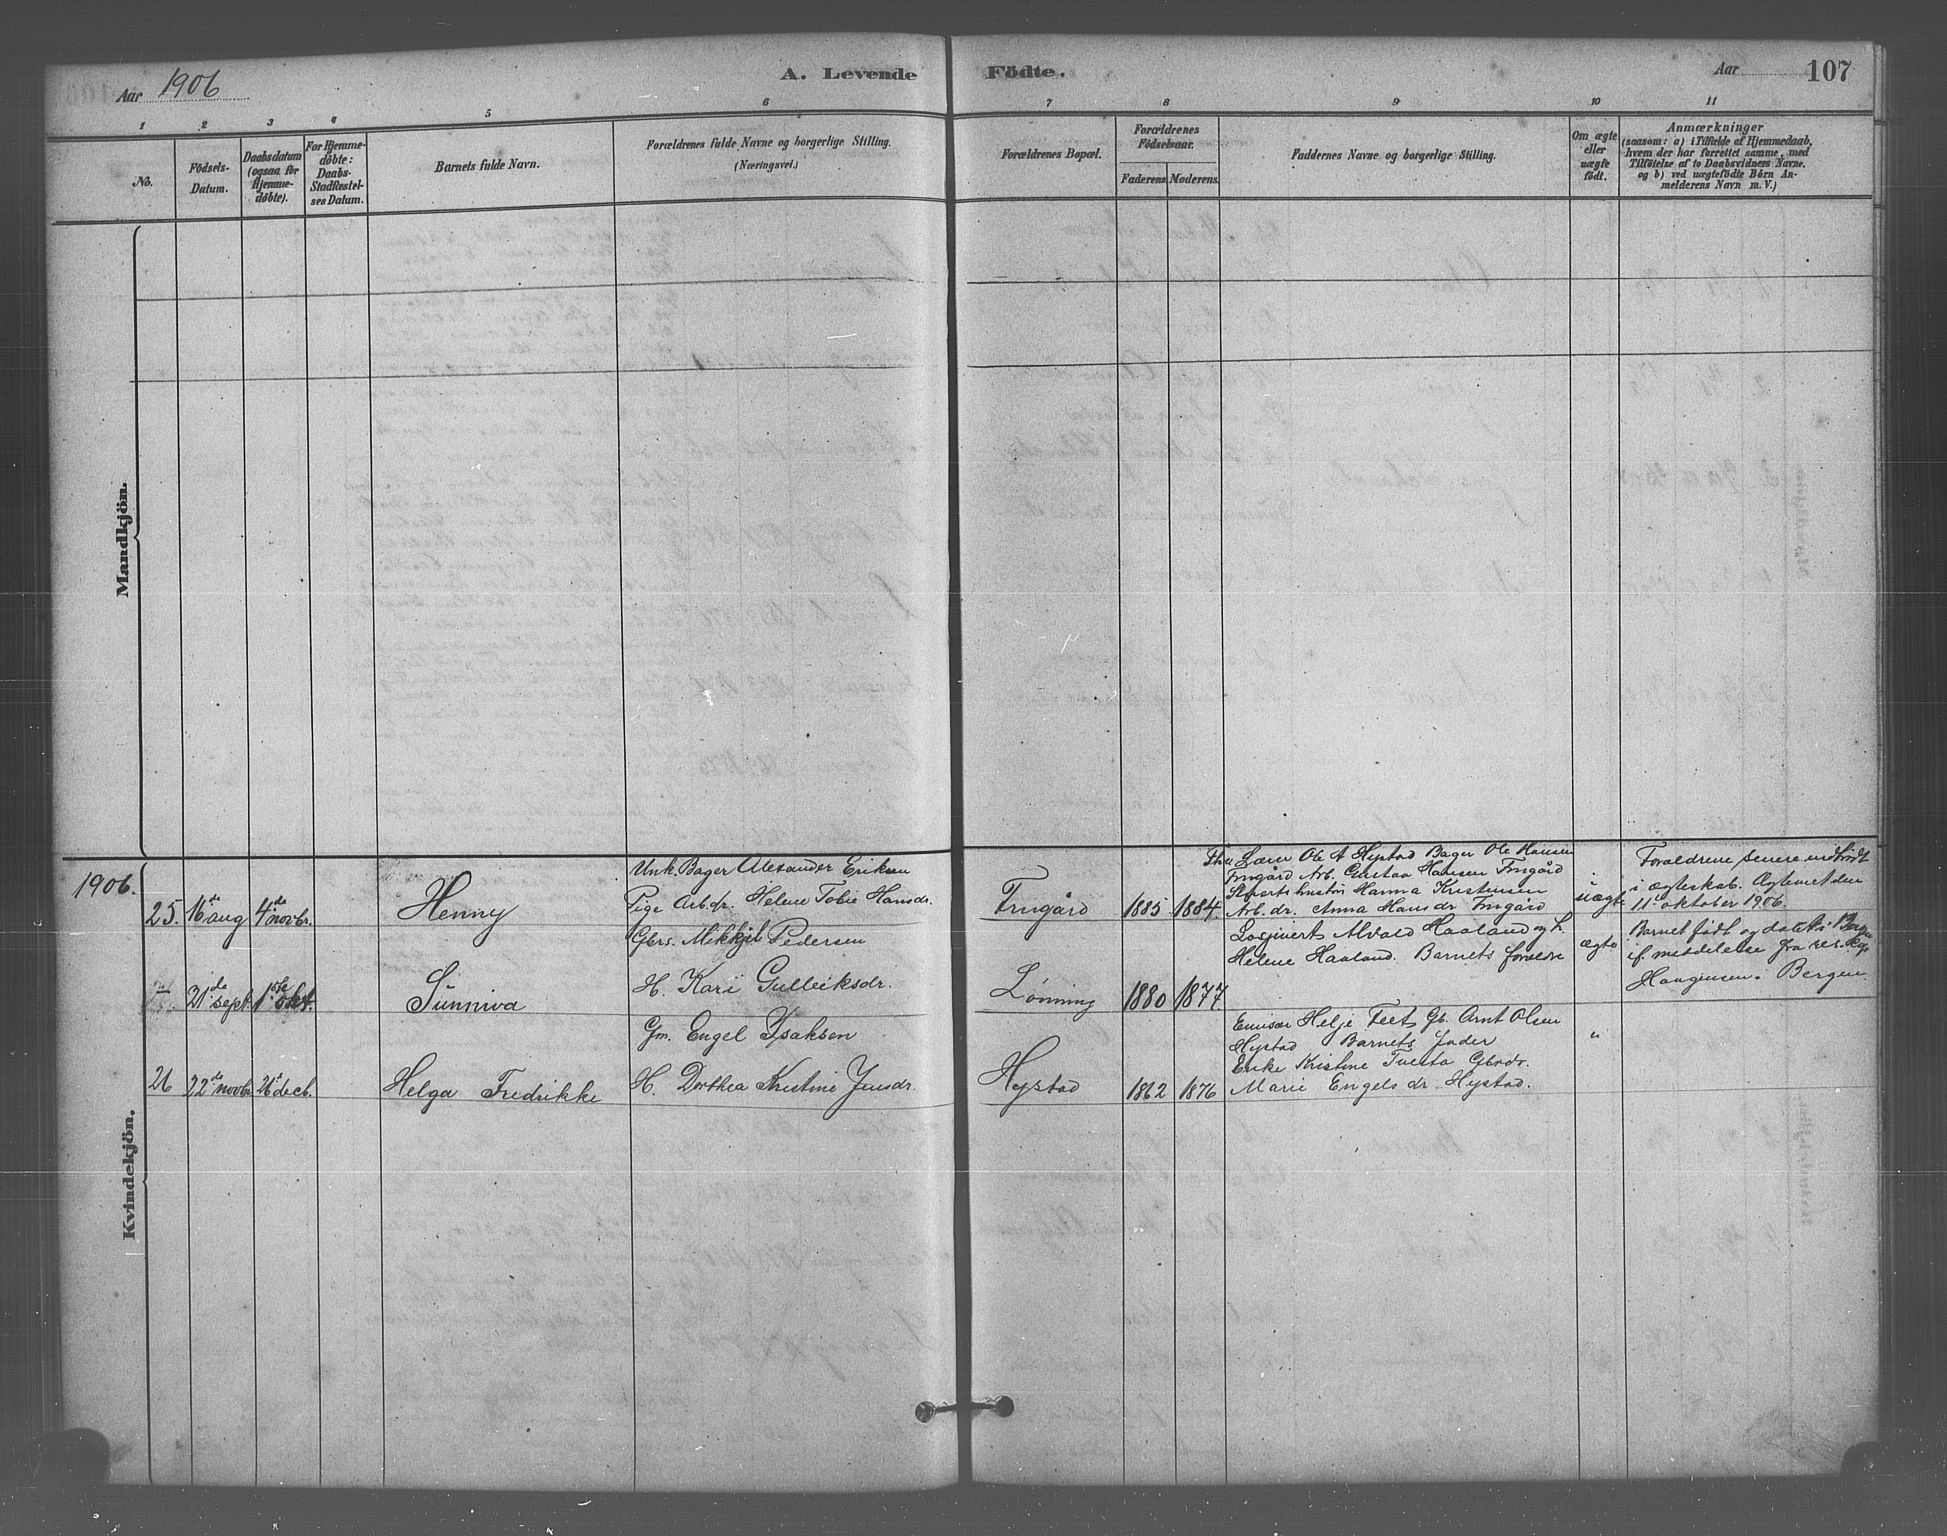 Aar 1906
A. Levende Födte.
Aar 107
1 2 3 4 5 6 7 8 9 10 11
No.
Födsels-
Datum.
Daabsdatum
(ogsaa for
Hjemme-
döbte).
For Hjemme-
döbte:
Daabs-
Stadfæstel-
ses Datum.
Barnets fulde Navn.
Forældrenes fulde Navne og borgerlige Stilling.
(Næringsvei.)
Forældrenes Bopæl.
Forældrenes
Födselsaar.
Faderens Moderens
Faddernes Navne og borgerlige Stilling.
Om ægte
eller
uægte
födt.
Anmærkninger
(saasom: a) i Tilfælde af Hjemmedaab,
hvem der har forrettet samme, med
Tilföielse af to Daabsvidners Navne.
og b) ved uægtefödte Börn An-
melderens Navn m. V.)
Mandkjön.
Kvindekjön.
1906.
25. 16de aug 4de novbr.
Henny
Unk. Bager Alexander Eriksen
Pige Arb.dr. Helene Tobie Hansdr.
Frugård
1885 1884
Lærer Ole A Hystad Bager Ole Hansen
Frugård Arb. Gustav Hansen Frugård
hustru Hanna Kristensen
Arb. dr. Anna Hansdr Frugård
uægte
Forældrene senere indtrådt
i ægteskab. Ægteviet den
11 oktober 1906.
21de sept. 1ste okt.
Sunniva
Gbrs. Mikkjel Pedersen
H. Kari Gulleiksdr.
Lönning
1880 1877
Losjivert Alvald Haaland og h.
Helene Haaland. Barnets forældre
ægte
Barnet född og döbt i Bergen
if. meddelelse fra res. kap.
Haagensen i Bergen
26 22de novbr 26de decb.
Helga Fredrikke
Gm. Engel Isaksen
H. Dorthea Kristine Jensdr.
Hystad
1862 1876
Emisær Helje Feet Gb. Arnt Olsen
Hystad Barnets fader
Enke Kristine Tveita Gbrdr.
Marie Engelsdr. Hystad.
"